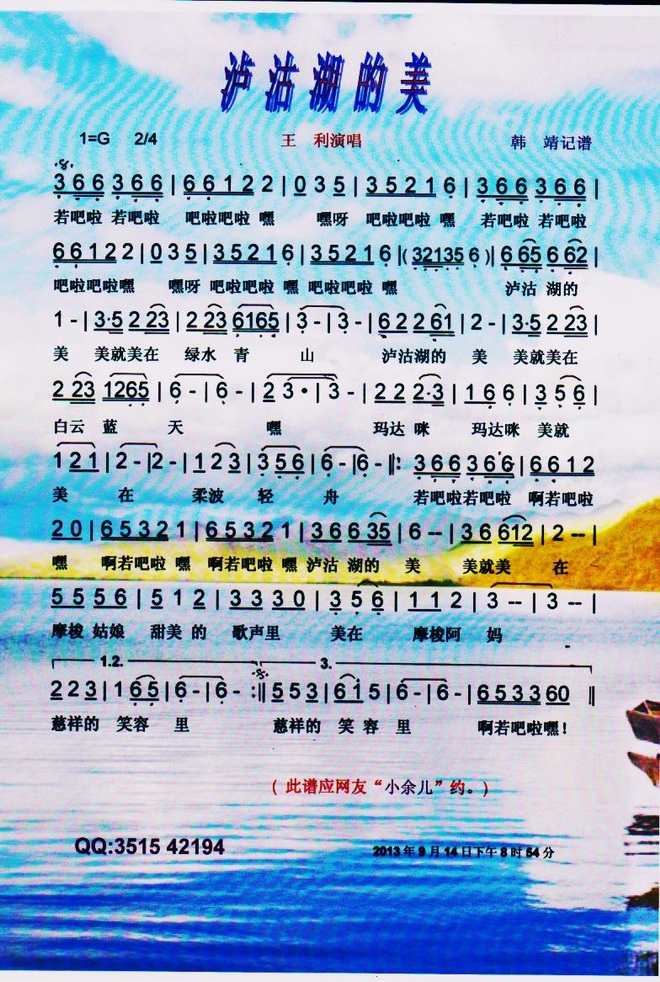 泸沽湖的美
1=G 2/4 王 利演唱 韩 靖记谱
.8.
3 6 6 3 6 6 | 6 6 1 2 2 | 0 3 5 | 3 5 2 1 6 | 3 6 6 3 6 6 |
若吧啦 若吧啦 吧啦吧啦 嘿 嘿呀 吧啦吧啦 嘿 若吧啦 若吧啦
6 6 1 2 2 | 0 3 5 | 3 5 2 1 6 | 3 5 2 1 6 |( 32135 6 )| 6 65 6 62 |
吧啦吧啦嘿 嘿呀 吧啦吧啦 嘿 吧啦吧啦 嘿 泸沽 湖的
1 - | 3·5 2 23 | 2 23 6165 | 3 - | 3 - | 6 2 2 61 | 2 - | 3·5 2 23 |
美 美就美在 绿水 青 山 泸沽湖的 美 美就美在
2 23 1265 | 6 - | 6 - | 2 3 • | 3 - | 2 2 2·3 | 1 6 6 | 3 5 6 |
白云 蓝 天 嘿 玛达 咪 玛达咪 美就
1 2 1 | 2 - | 2 - | 1 2 3 | 3 5 6 | 6 - | 6 - ‖: 3 6 6 3 6 6 | 6 6 1 2
美 在 柔波 轻 舟 若吧啦若吧啦 啊若吧啦
2 0 | 6 5 3 2 1 | 6 5 3 2 1 | 3 6 6 35 | 6 -- | 3 6 612 | 2 -- |
嘿 啊若吧啦 嘿 啊若吧啦 嘿 泸沽 湖的 美 美就美 在
5 5 5 6 | 5 1 2 | 3 3 3 0 | 3 5 6 | 1 1 2 | 3 -- | 3 -- |
摩梭 姑娘 甜美 的 歌声里 美在 摩梭阿 妈
1.2. .8. 3.
2 2 3 | 1 6 5 | 6 - | 6 - :‖ 5 5 3 | 6 1 5 | 6 - | 6 - | 6 5 3 3 60 ‖
慈祥的 笑容 里 慈祥的 笑 容 里 啊若吧啦嘿！
( 此谱应网友“小余儿”约。)
QQ:3515 42194 2013年9月14日下午8时54分